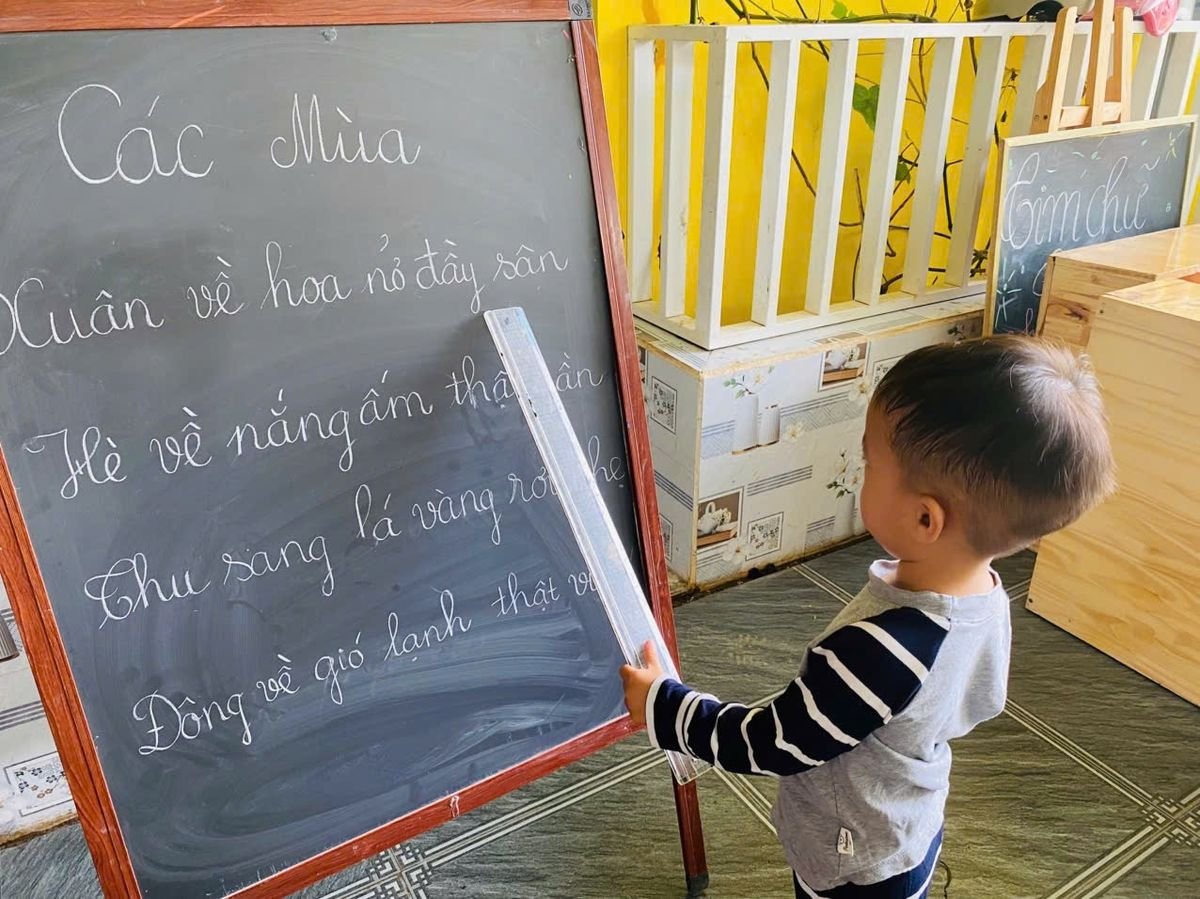 Các Mùa
Xuân về hoa nở đầy sân
Hè về nắng ấm
Thu sang lá vàng
Đông về gió lạnh thật
Tìm chữ